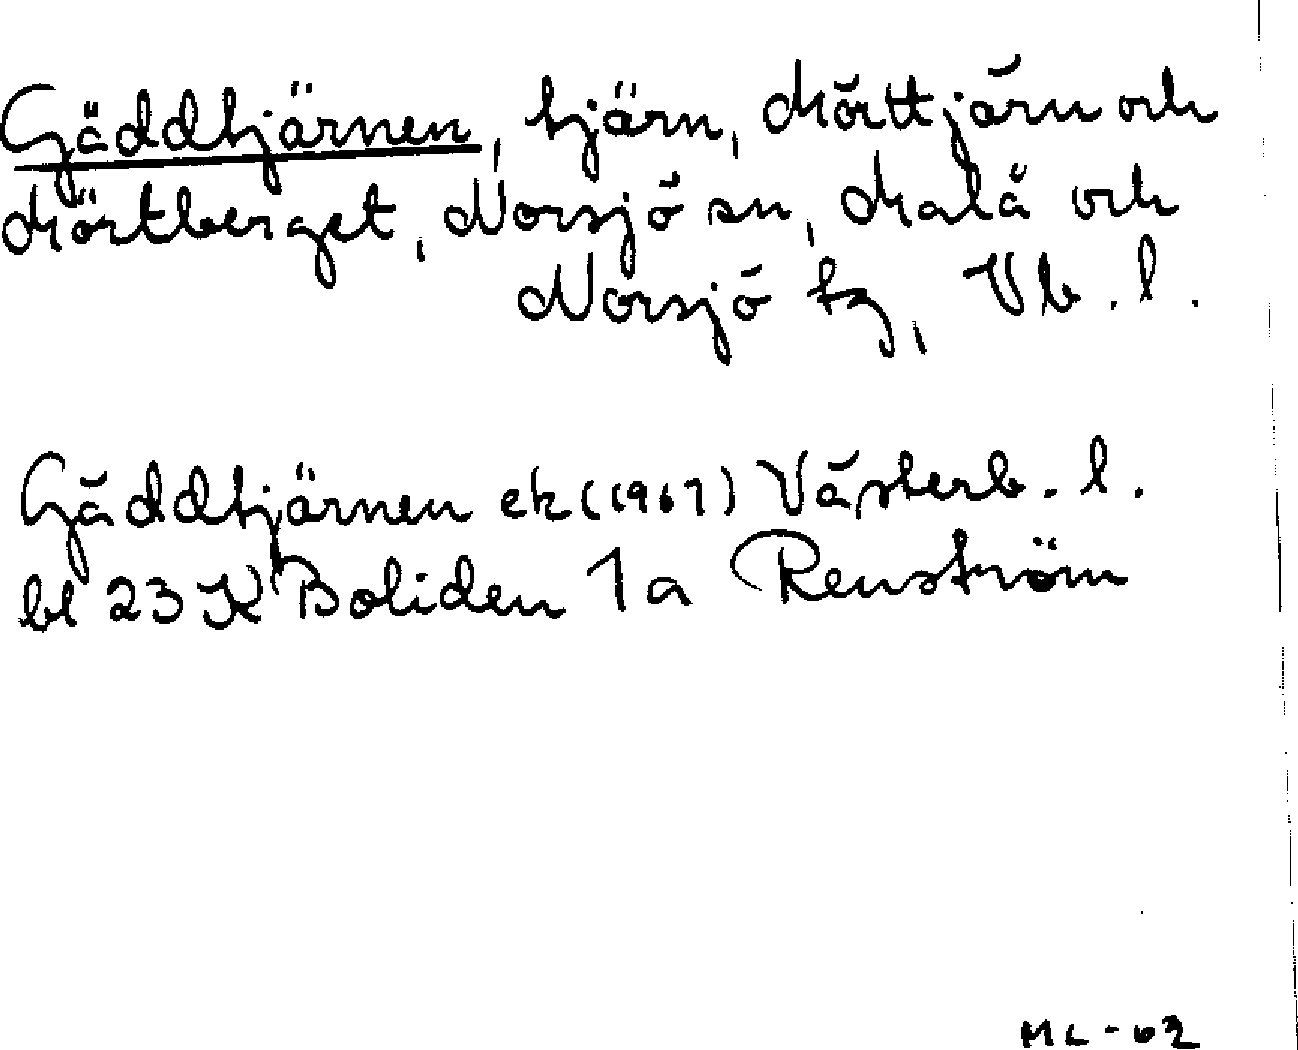 Gäddtjärnen, tjärn, Mörttjärn och
Mörtberget, Norsjö sn, Malå och
Norsjö tg, Vb. l.
Gäddtjärnen ek (1967) Västerb. l.
bl 23 K Boliden 1a Renström
ML-02